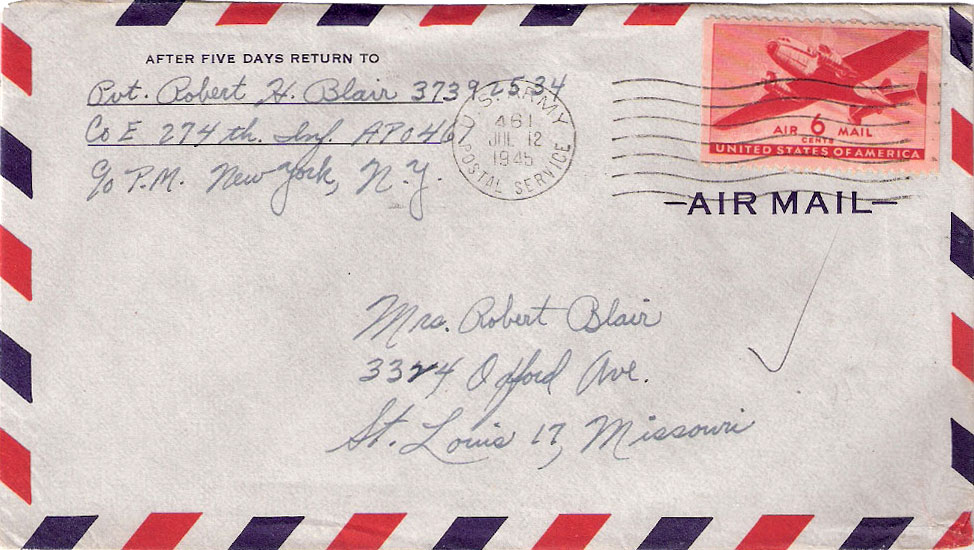 AFTER FIVE DAYS RETURN TO
Pvt. Robert H. Blair 37392534
Co E 274 th. Inf. APO 461
c/o P.M. New York, N.Y.
U.S. ARMY
461
JUL 12
1945
POSTAL SERVICE
AIR 6 MAIL
CENTS
UNITED STATES OF AMERICA
-AIR MAIL-
Mrs. Robert Blair
3324 Oxford Ave.
St. Louis 17, Missouri